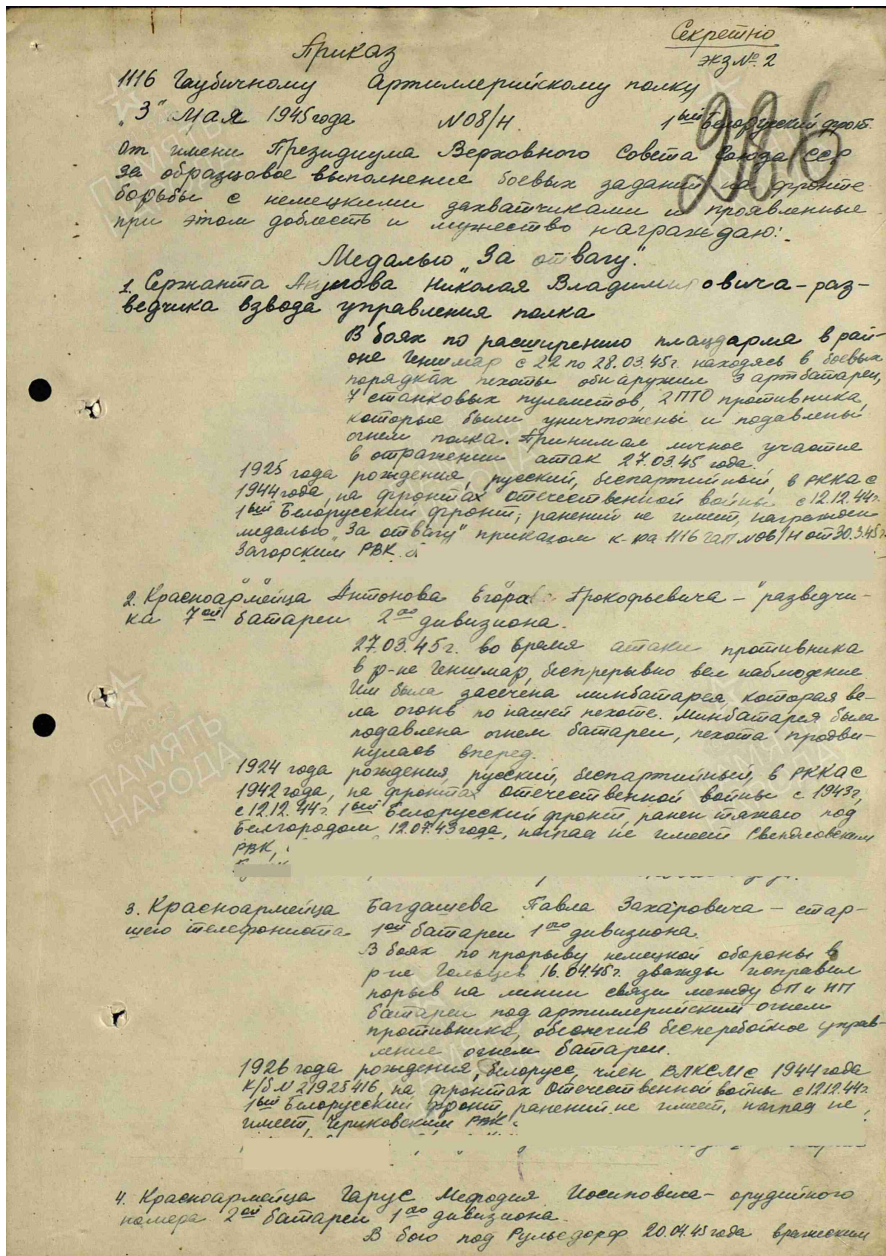 Секретно
Приказ
экз № 2
1116 Гаубичному Артиллерийскому полку
„3" Мая 1945 года N08/Н 1ый Белорусский фронт
286
От имени Президиума Верховного Совета Союза ССР
за образцовое выполнение боевых заданий на фронте
борьбы с немецкими захватчиками и проявленные
при этом доблесть и мужество награждаю:
Медалью „За отвагу".
1. Сержанта Николая Владимировича – раз-
ведчика взвода управления полка
В боях по расширению плацдарма в рай-
оне Геншмар с 22 по 28.03.45г. находясь в боевых
порядках пехоты обнаружил 3 артбатареи,
7 станковых пулеметов, 2 ПТО противника,
которые были уничтожены и подавлены
огнем полка. Принимал личное участие
в отражении атак 27.03.45 года.
1925 года рождения, русский, беспартийный, в РККА с
1944 года, на фронтах отечественной войны с 12.12.44г.
1ый Белорусский фронт; ранений не имеет, награжден
медалью „За отвагу" приказом к-ра 1116 ГАП от 30.3.45г.
Загорским РВК.
2. Красноармейца Антонова Егора Прокофьевича – разведчи-
ка 7ой батареи 2го дивизиона.
27.03.45г. во время атаки противника
в р-не Геншмар, беспрерывно вел наблюдение
Им была засечена минбатарея, которая ве-
ла огонь по нашей пехоте. Минбатарея была
подавлена огнем батареи, пехота продви-
нулась вперед.
1924 года рождения, русский, беспартийный, в РККА с
1942 года, на фронтах отечественной войны с 1943г,
с 12.12.44г. 1ый Белорусский фронт, ранен тяжело под
Белгородом 12.07.43 года, наград не имеет Свердловским
РВК,
3. Красноармейца Багдашева Павла Захаровича – стар-
шего телефониста 1ой батареи 1го дивизиона.
В боях по прорыву немецкой обороны в
р-не Гольцев 16.04.45г. дважды исправил
порыв на линии связи между ОП и НП
батареи под артиллерийским огнем
противника, обеспечив бесперебойное управ-
ление огнем батареи.
1926 года рождения, белорусс, член ВЛКСМ с 1944 года
К/б N 21925416, на фронтах Отечественной войны с 12.12.44г.
1ый Белорусский фронт, ранений не имеет, наград не
имеет, Чериковским РВК.
4. Красноармейца Гарус Мефодия Иосиповича – орудийного
номера 2ой батареи 1го дивизиона.
В бою под Рульсдорф 20.04.45 года вражеским
ПАМЯТЬ
НАРОДА